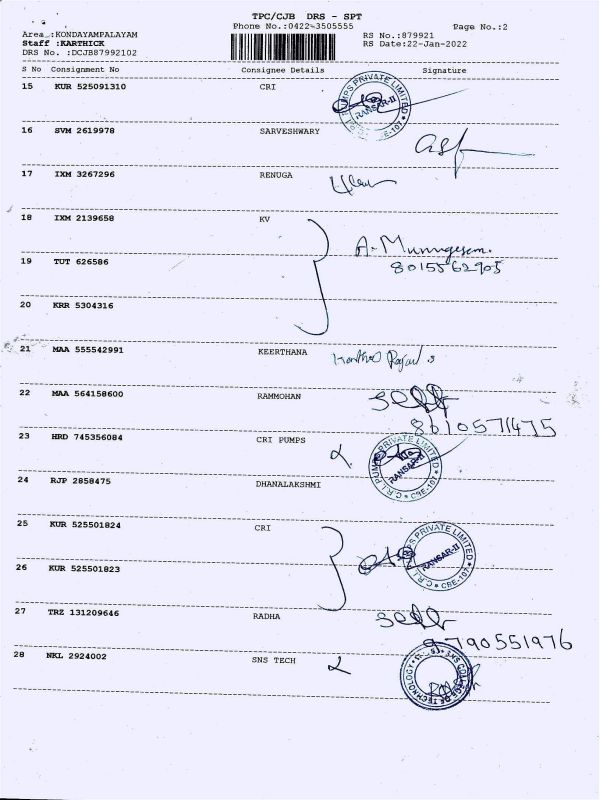 TPC/CJB DRS - SPT
Phone No.:0422-3505555
Page No.:2
Area :KONDAYAMPALAYAM
RS No.:879921
Staff :KARTHICK
RS Date:22-Jan-2022
DRS No. :DCJB87992102
S No Consignment No Consignee Details Signature
15 KUR 525091310 CRI
C.R.I. PUMPS PRIVATE LIMITED
RANSAR-II
CBE-107
16 SVM 2619978 SARVESHWARY
17 IXM 3267296 RENUGA
18 IXM 2139658 KV
A. Murugesan.
19 TUT 626586
8015562905
20 KRR 5304316
21 MAA 555542991 KEERTHANA
22 MAA 564158600 RAMMOHAN
Self
8610571475
23 HRD 745356084 CRI PUMPS
C.R.I. PUMPS PRIVATE LIMITED
RANSAR-II
CBE-107
24 RJP 2858475 DHANALAKSHMI
25 KUR 525501824 CRI
C.R.I. PUMPS PRIVATE LIMITED
RANSAR-II
CBE-107
26 KUR 525501823
27 TRZ 131209646 RADHA
Self
9790551976
28 NKL 2924002 SNS TECH
SNS COLLEGE OF TECHNOLOGY